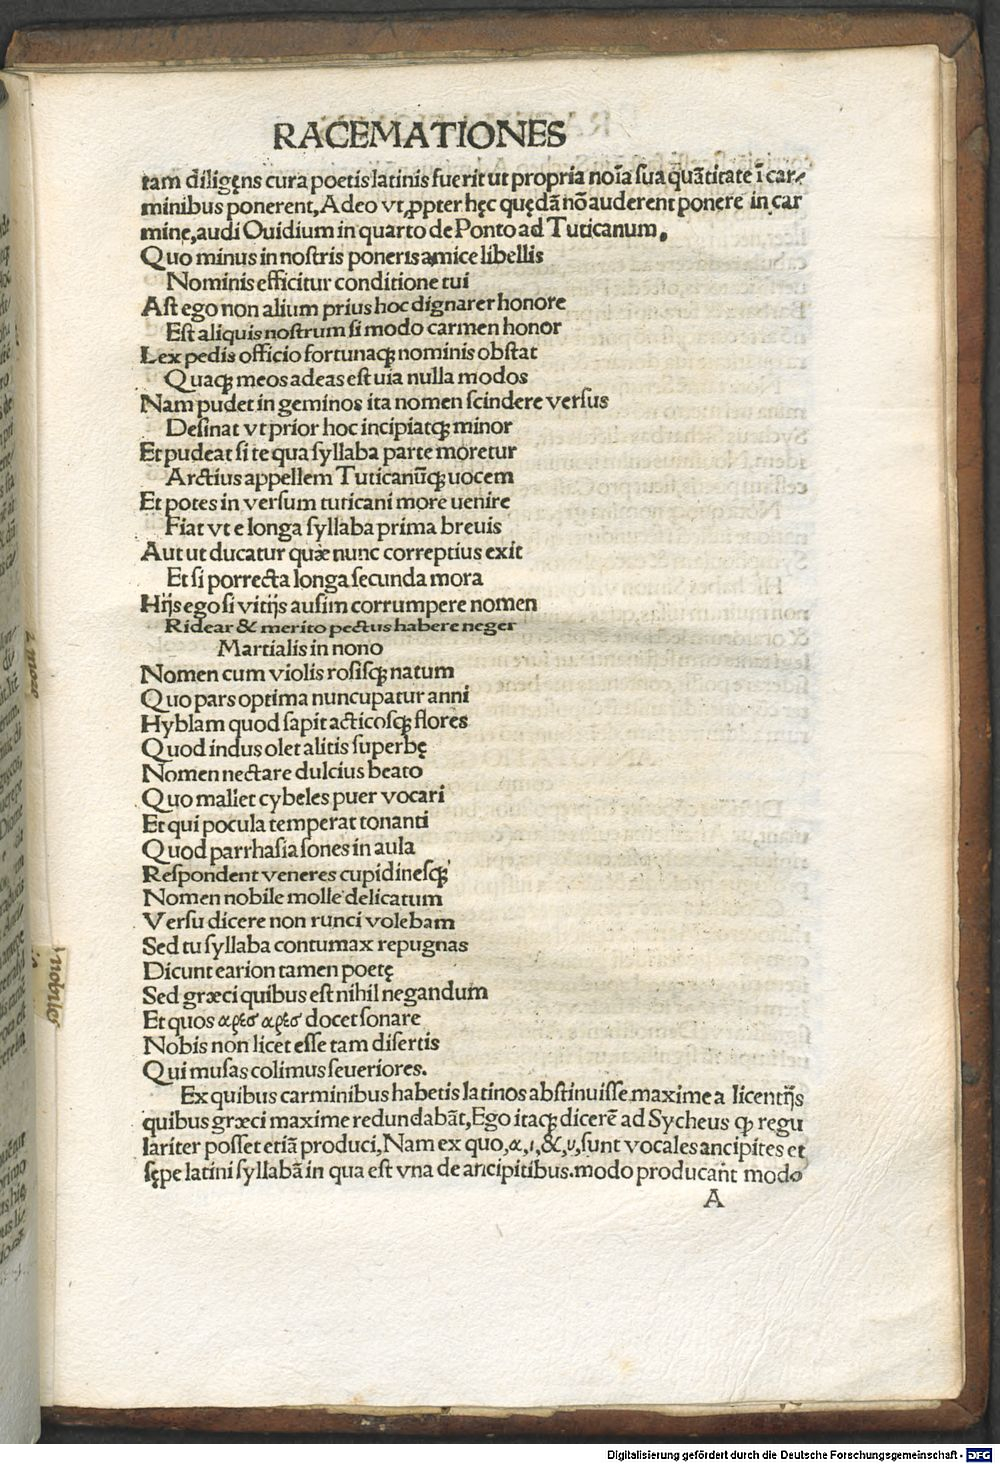 RACEMATIONES
tam diligęns cura poetis latinis fuerit ut propria noīa sua quātitate ī car⸗
minibus ponerent, Adeo vt ꝓpter hęc quędā nō auderent ponere in car
mine, audi Ouidium in quarto de Ponto ad Tuticanum.
Quo minus in nostris poneris amice libellis
Nominis efficitur conditione tui
Ast ego non alium prius hoc dignarer honore
Est aliquis nostrum si modo carmen honor
Lex pedis officio fortunaqꝫ nominis obstat
Quaqꝫ meos adeas est uia nulla modos
Nam pudet in geminos ita nomen scindere versus
Desinat vt prior hoc incipiatqꝫ minor
Et pudeat si te qua syllaba parte moretur
Arctius appellem Tuticanūqꝫ uocem
Et potes in versum tuticani more uenire
Fiat vt e longa syllaba prima breuis
Aut ut ducatur quæ nunc correptius exit
Et si porrecta longa secunda mora
Hijs ego si vitijs ausim corrumpere nomen
Ridear & merito pectus habere neger
Martialis in nono
Nomen cum violis rosisqꝫ natum
Quo pars optima nuncupatur anni
Hyblam quod sapit acticosqꝫ flores
Quod indus olet alitis superbę
Nomen nectare dulcius beato
Quo mallet cybeles puer vocari
Et qui pocula temperat tonanti
Quod parrhasia sones in aula
Respondent veneres cupidinesqꝫ
Nomen nobile molle delicatum
Versu dicere non runci volebam
Sed tu syllaba contumax repugnas
Dicunt earion tamen poetę
Sed græci quibus est nihil negandum
Et quos αρεσ αρεσ docet sonare
Nobis non licet esse tam disertis
Qui musas colimus seueriores.
Ex quibus carminibus habetis latinos abstinuisse maxime a licentijs
quibus græci maxime redundabāt, Ego itaqꝫ dicerē ad Sycheus ꝙ regu
lariter posset etiā produci, Nam ex quo, α, ι, &, υ, sunt vocales ancipites et
sępe latini syllabā in qua est vna de ancipitibus. modo producant modo
A
nobiles
Digitalisierung gefördert durch die Deutsche Forschungsgemeinschaft - DFG